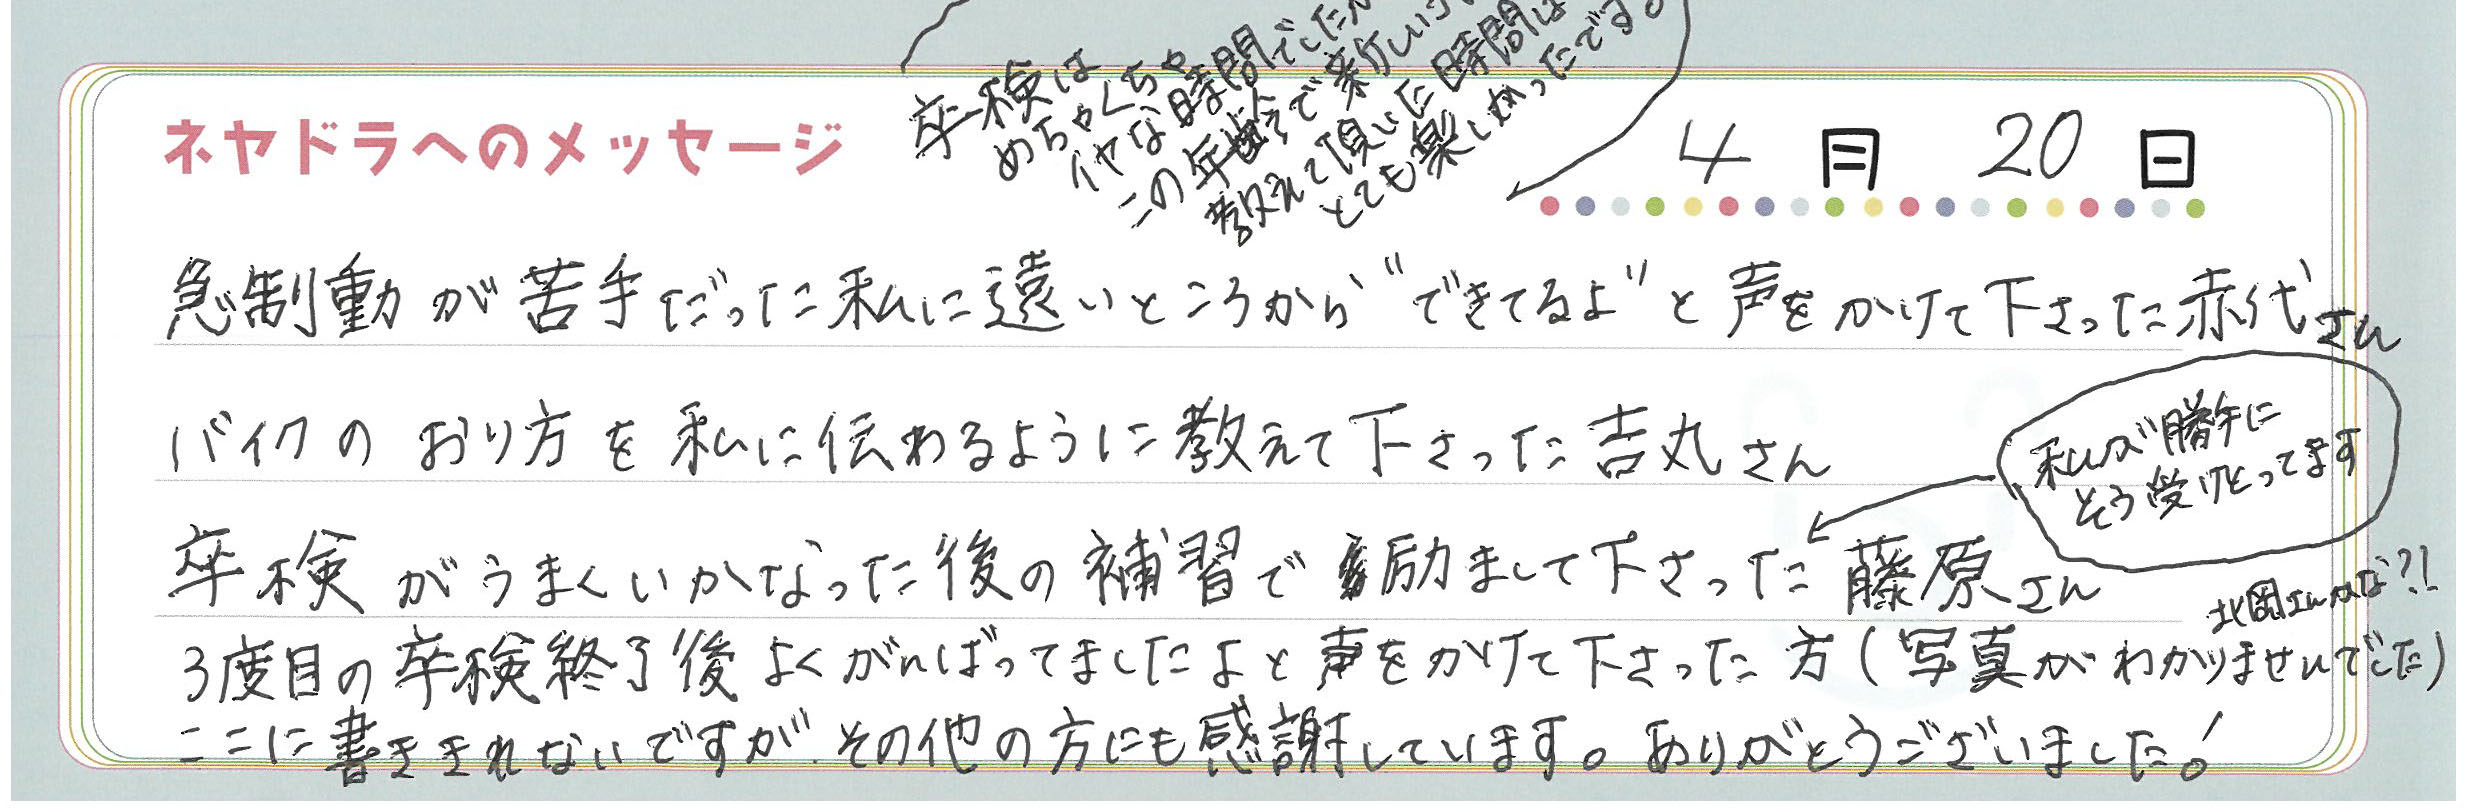 ネヤドラへのメッセージ
4月20日
卒検は
めちゃくちゃ
イヤな時間でした
この年齢で新しい
教えて頂いた時間は
とても楽しかったです。
急制動が苦手だった私に遠いところから“できてるよ”と声をかけて下さった赤代さん
バイクのおり方を私に伝わるように教えて下さった吉丸さん
私が勝手に
そう受けとってます
卒検がうまくいかなった後の補習で励まして下さった藤原さん
北岡さんかな?!
3度目の卒検終了後よくがんばってましたよと声をかけて下さった方(写真がわかりませんでした)
ここに書ききれないですが、その他の方にも感謝しています。ありがとうございました!